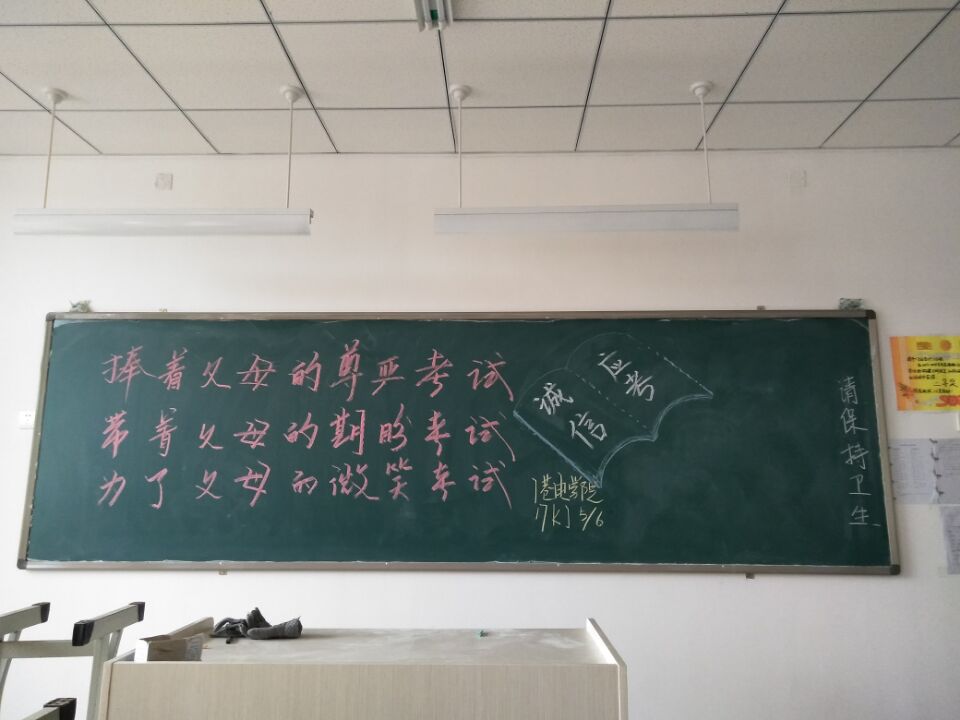 捧着父母的尊严考试
带着父母的期盼考试
为了父母的微笑考试
诚信
应考
港电学院
17KJ 5/6
请保持卫生
二等奖